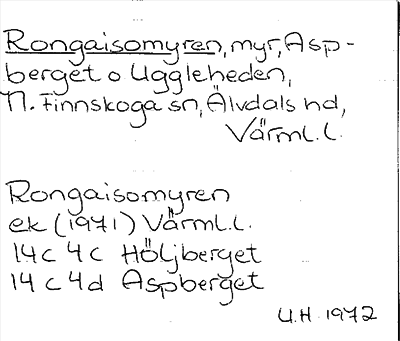 Rongaisomyren, myr, Asp-
berget o Uggleheden,
N. Finnskoga sn, Älvdals hd,
Värml. l.
Rongaisomyren
ek (1971) Värml. l.
14 c 4 c Höljberget
14 c 4 d Aspberget
U.H. 1972